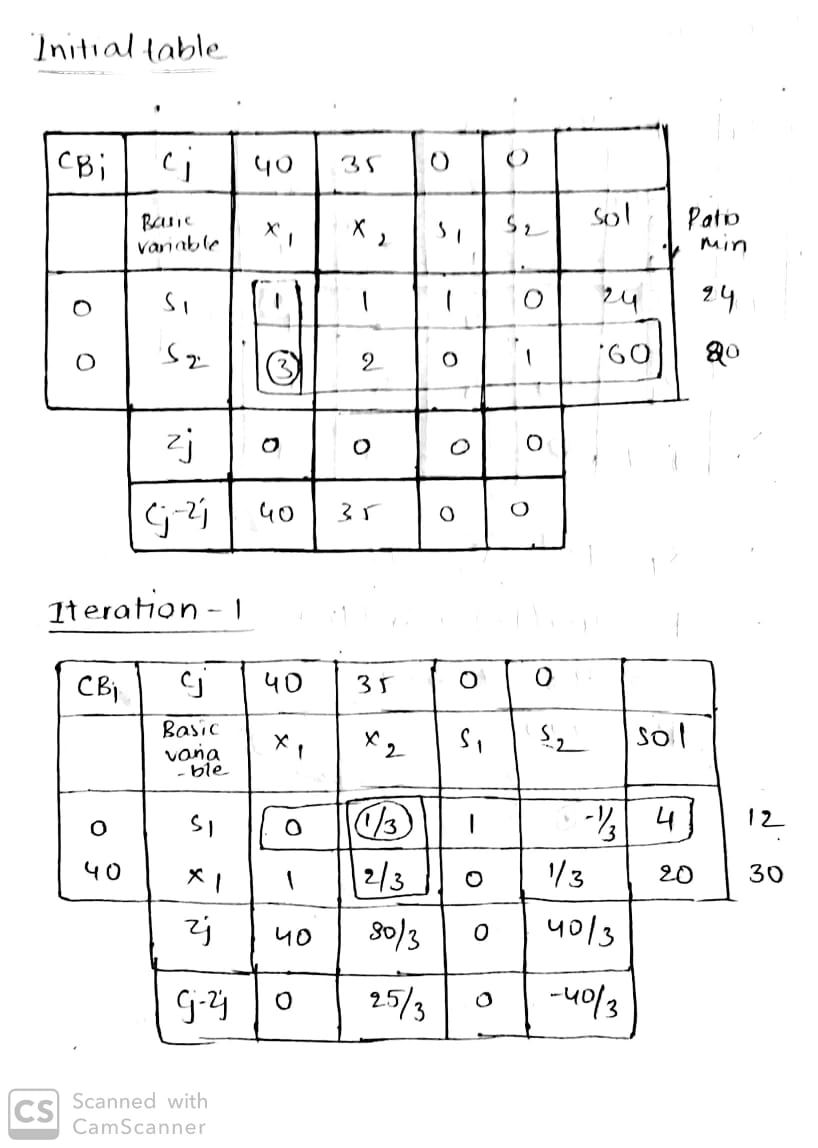 Initial table
CBi Cj 40 35 0 0
Basic variable x1 x2 S1 S2 Sol Ratio min
0 S1 1 1 1 0 24 24
0 S2 3 2 0 1 60 20
Zj 0 0 0 0
Cj-Zj 40 35 0 0
Iteration - 1
CBi Cj 40 35 0 0
Basic varia-ble x1 x2 S1 S2 Sol
0 S1 0 1/3 1 -1/3 4 12
40 x1 1 2/3 0 1/3 20 30
Zj 40 80/3 0 40/3
Cj-Zj 0 25/3 0 -40/3
CS Scanned with
CamScanner